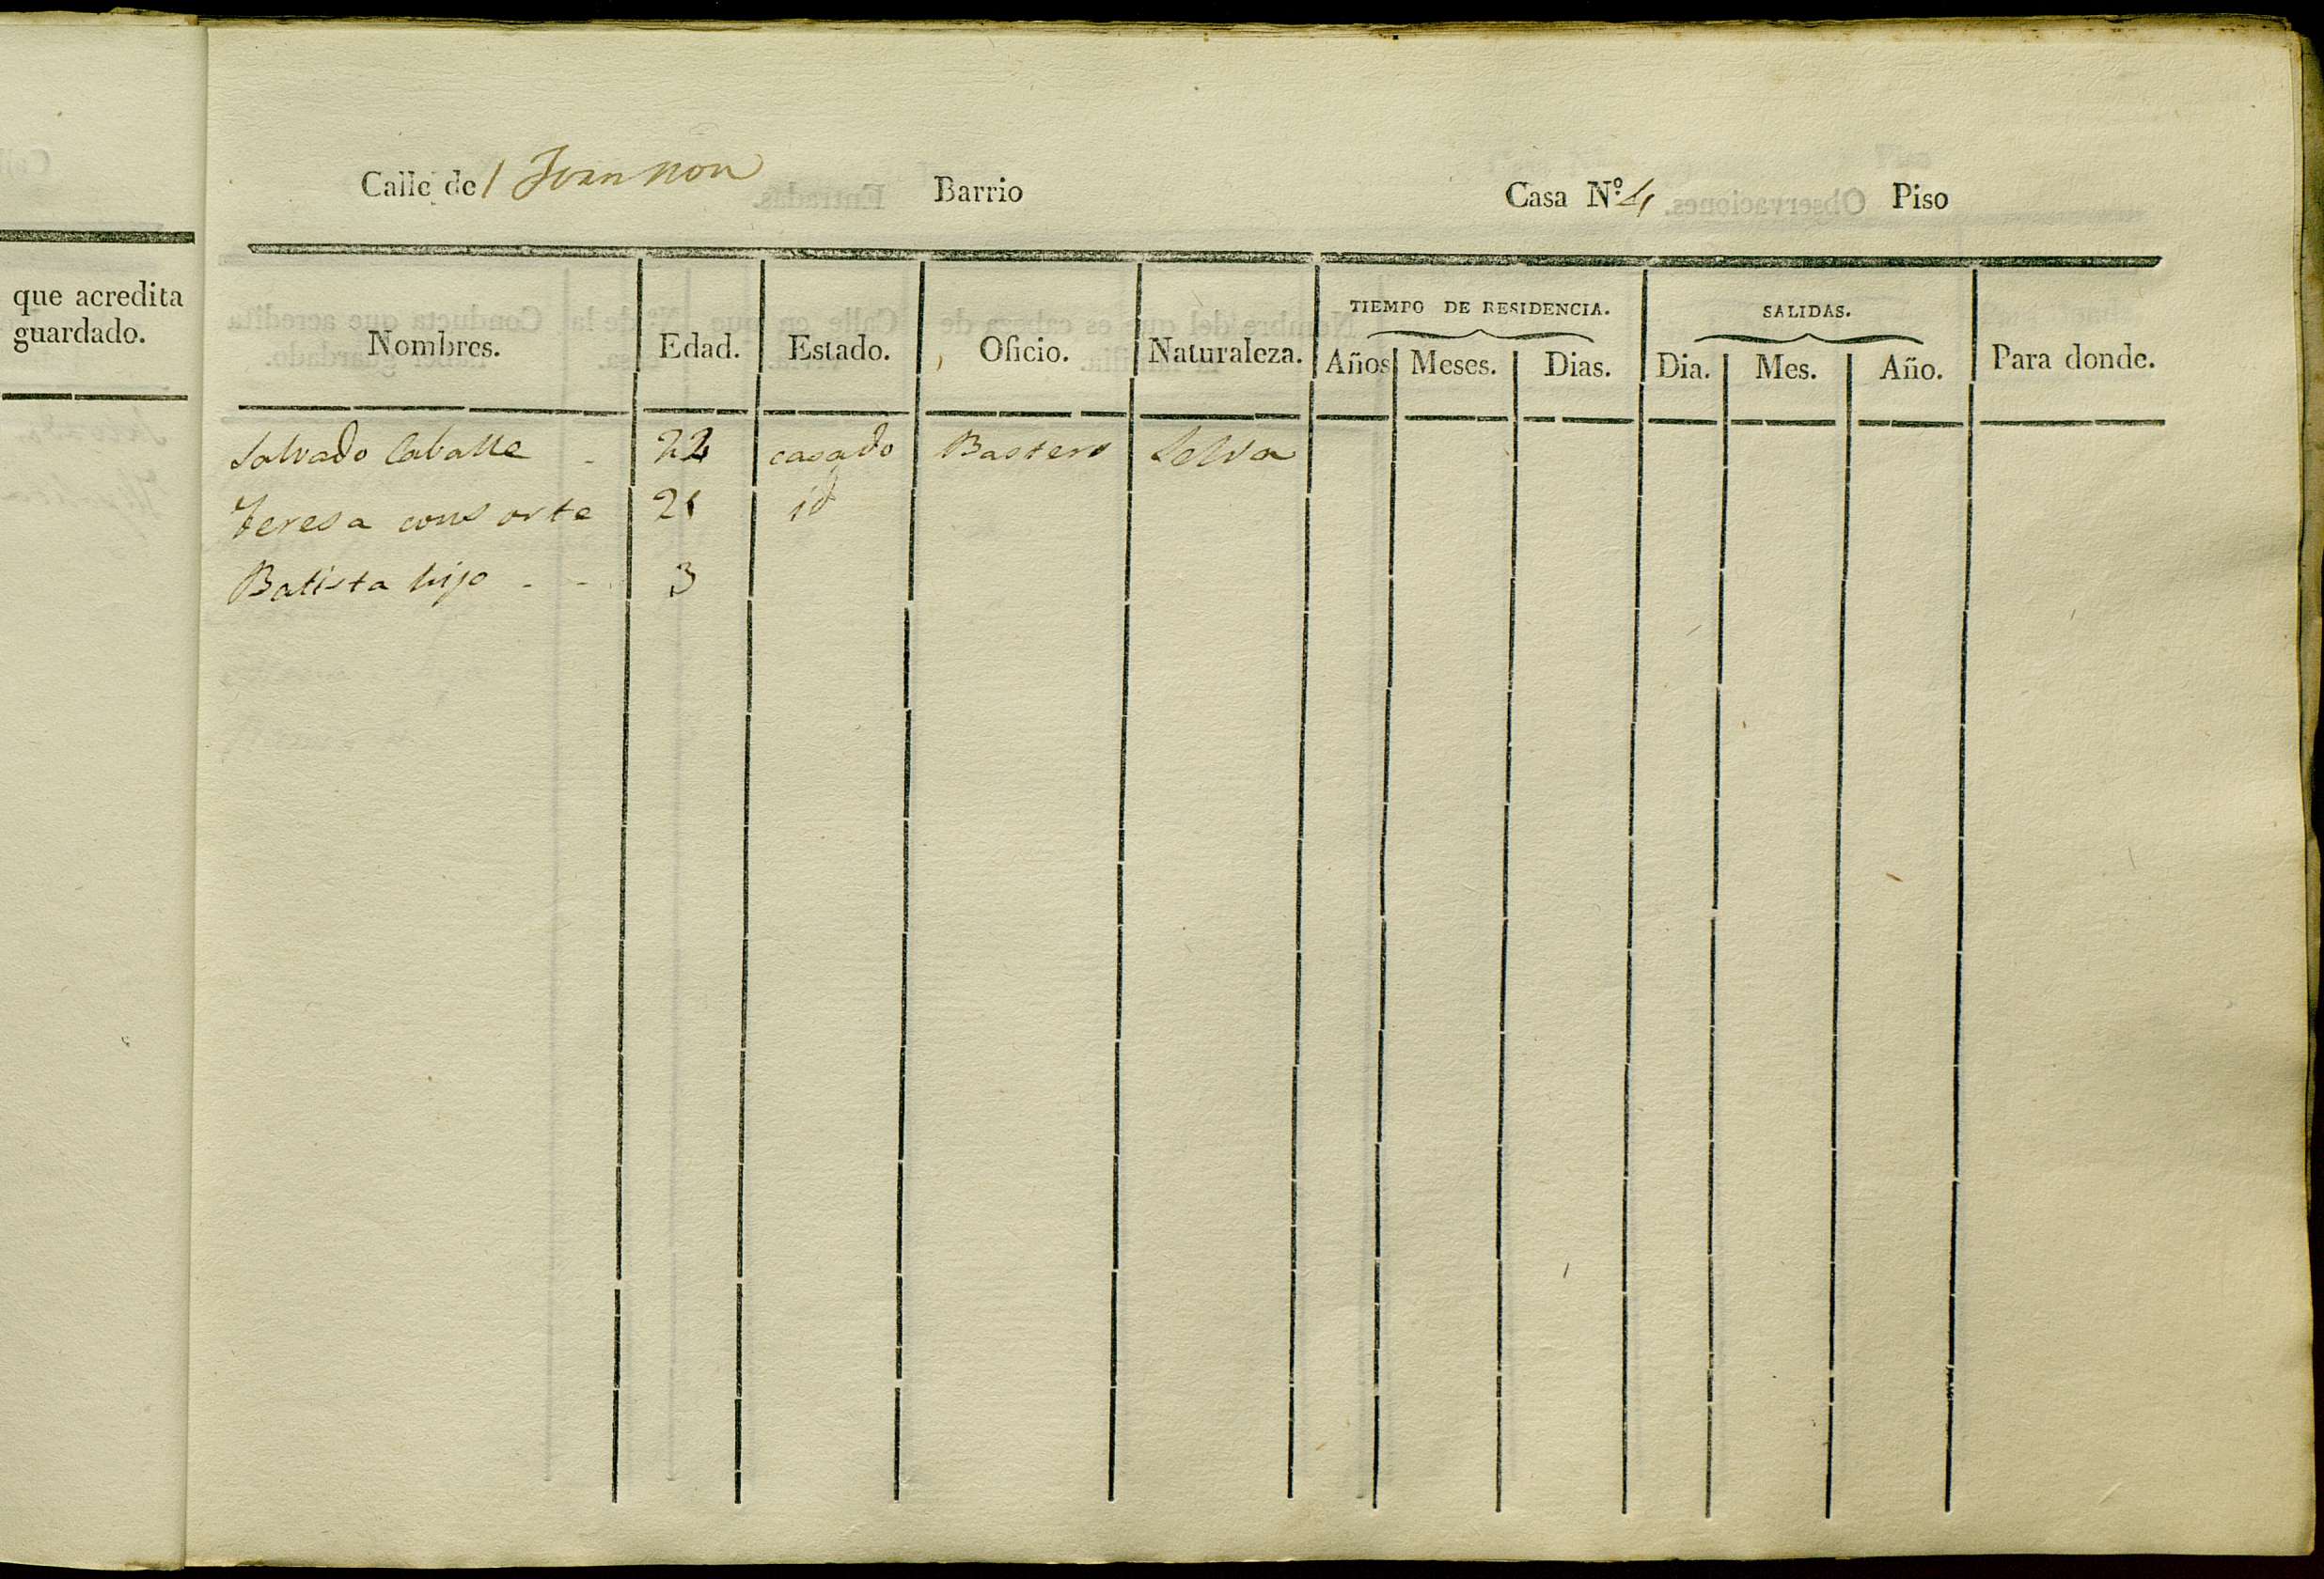 que acredita
guardado.
Calle de l Juan nou Barrio Casa Nº 4 Piso
Nombres. Edad. Estado. Oficio. Naturaleza. TIEMPO DE RESIDENCIA. SALIDAS. Para donde.
Años Meses. Dias. Dia. Mes. Año.
Salvado Caballe - 22 casado Bastero Selva
Teresa consorte 21 id
Batista hijo - - 3